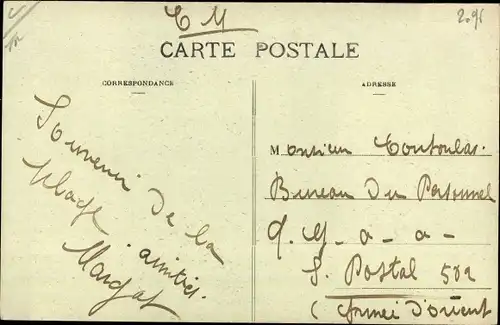 C M
2095
CARTE POSTALE
CORRESPONDANCE
ADRESSE
Souvenir de la
plage. amitiés.
Margat
Monsieur Toutoulas.
Bureau Du Personnel
Q. G - a - a -
S. Postal 502
(Armée d'orient